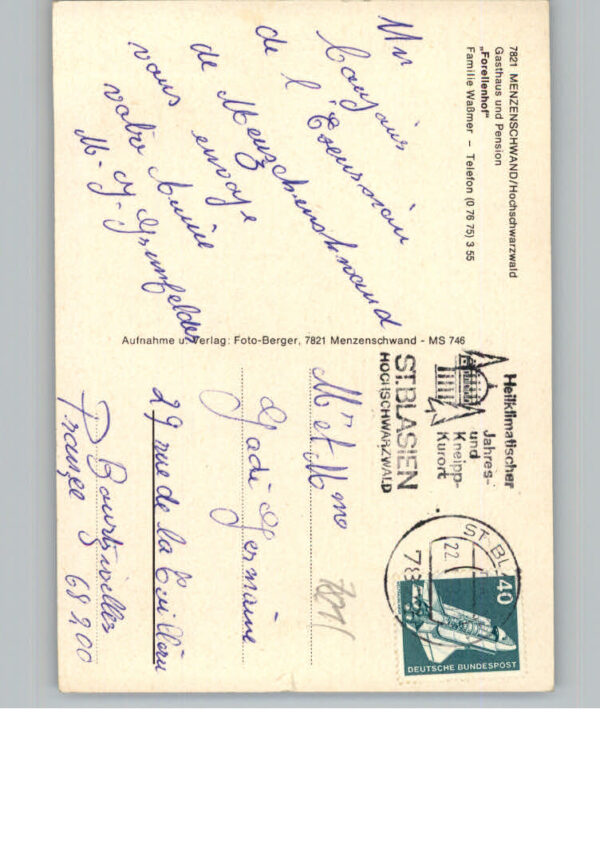 7821 MENZENSCHWAND/Hochschwarzwald
Gasthaus und Pension
„Forellenhof“
Familie Waßmer – Telefon (0 76 75) 3 55
Un
bonjour
de l'excursion
de Menzschenshwand
envoye
vous
votre Amie
M. J. Grunfelder
Aufnahme u. Verlag: Foto-Berger, 7821 Menzenschwand - MS 746
Heilklimatischer
Jahres-
und
Kneipp-
Kurort
ST.BLASIEN
HOCHSCHWARZWALD
ST BL
22
40
DEUTSCHE BUNDESPOST
Mr et Mme
Gadi Germaine
29 rue de la
Bourtzwiller
France 68200